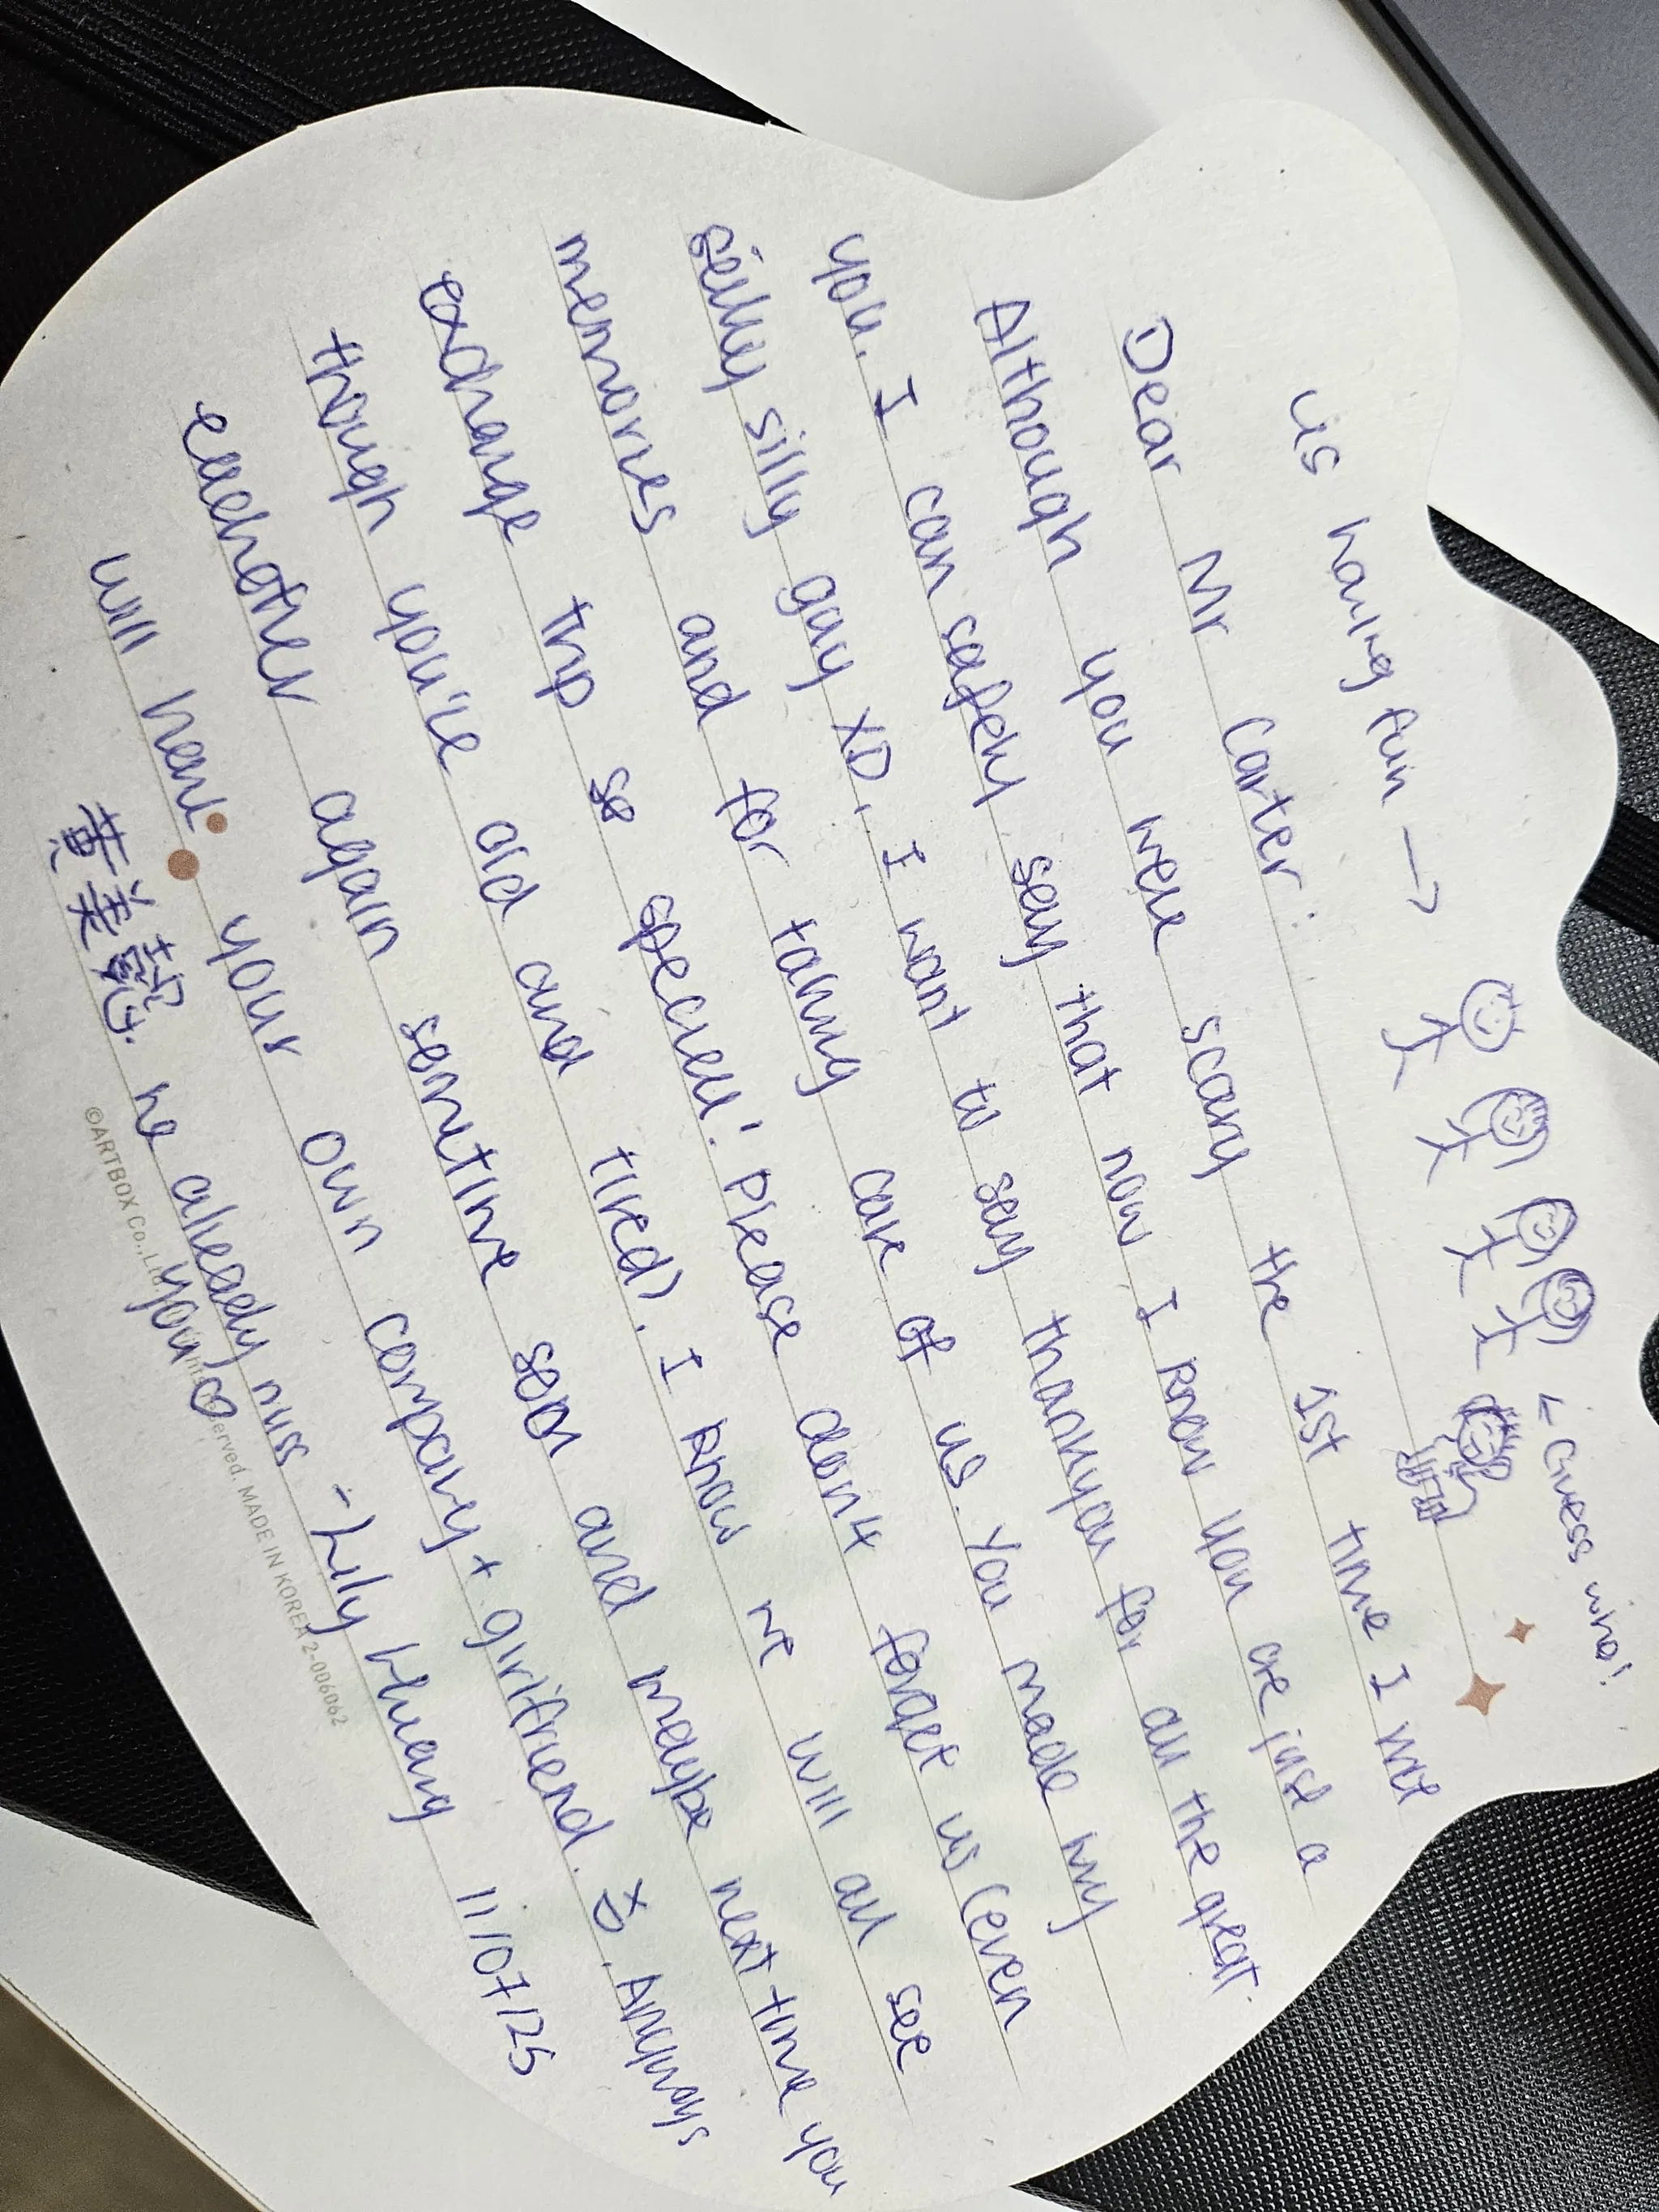 us having fun →
← Guess who!
Dear Mr Carter:
Although you were scary the 1st time I met
you, I can safely say that now I know you are just a
silly silly guy XD, I want to say thankyou for all the great
memories and for taking care of us. You made my
exchange trip so special! Please don't forget us (even
though you're old and tired). I know we will all see
eachother again sometime soon and maybe next time you
will have your own company + girlfriend. Anyways
we already miss
you ♡
- Lily Huang 11/07/25
©ARTBOX Co.,Ltd. reserved. MADE IN KOREA 2-006062